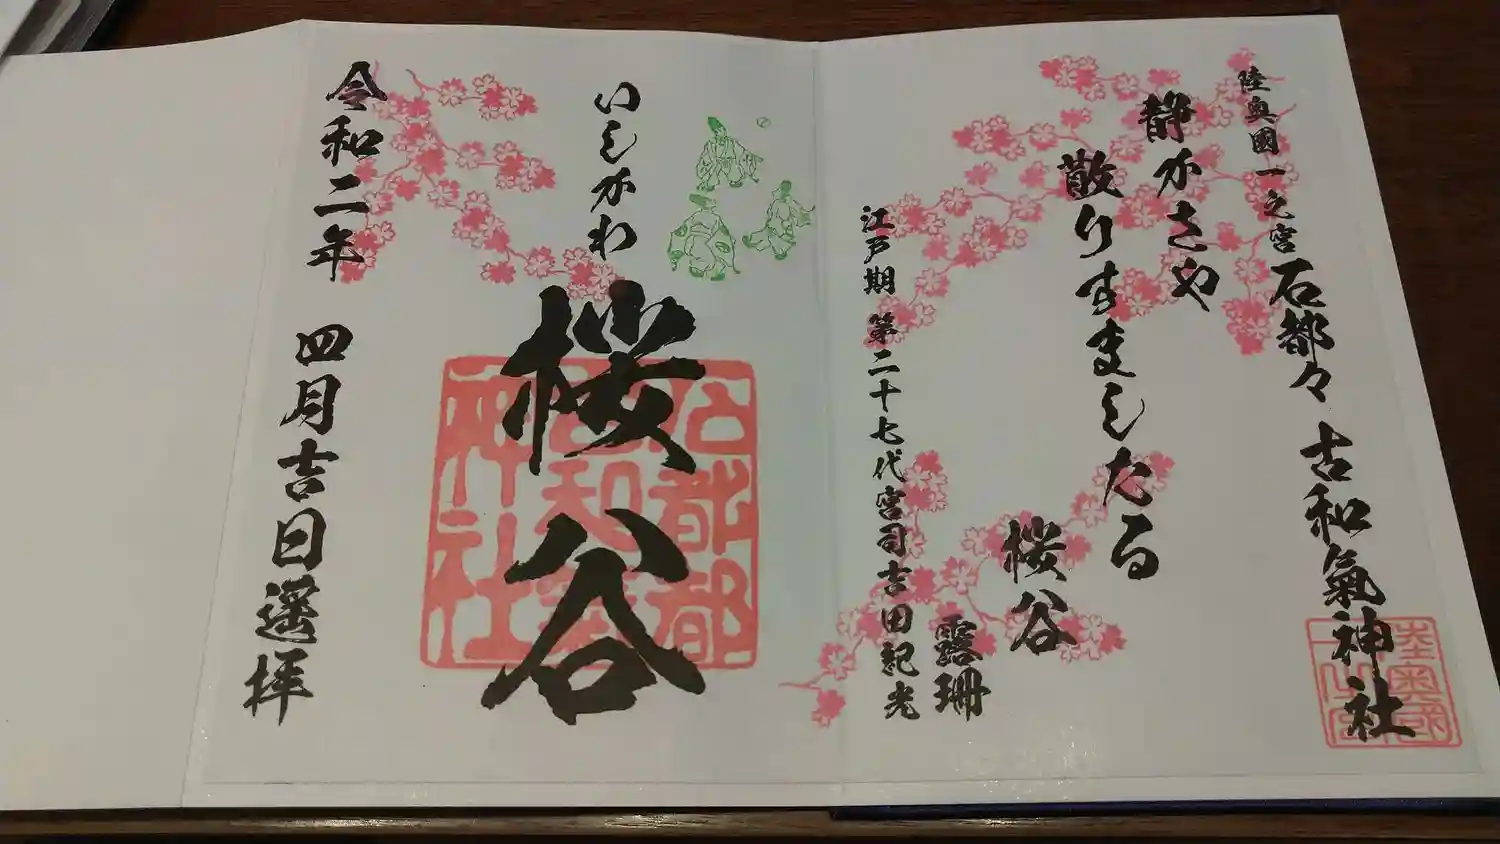 陸奥國一之宮 石都々古和氣神社
静かさや
散りすましたる
桜谷
露珊
江戸期 第二十七代宮司吉田紀光
いしかわ
桜谷
令和二年 四月吉日遥拝
陸奥國一之宮
石都都古和氣神社